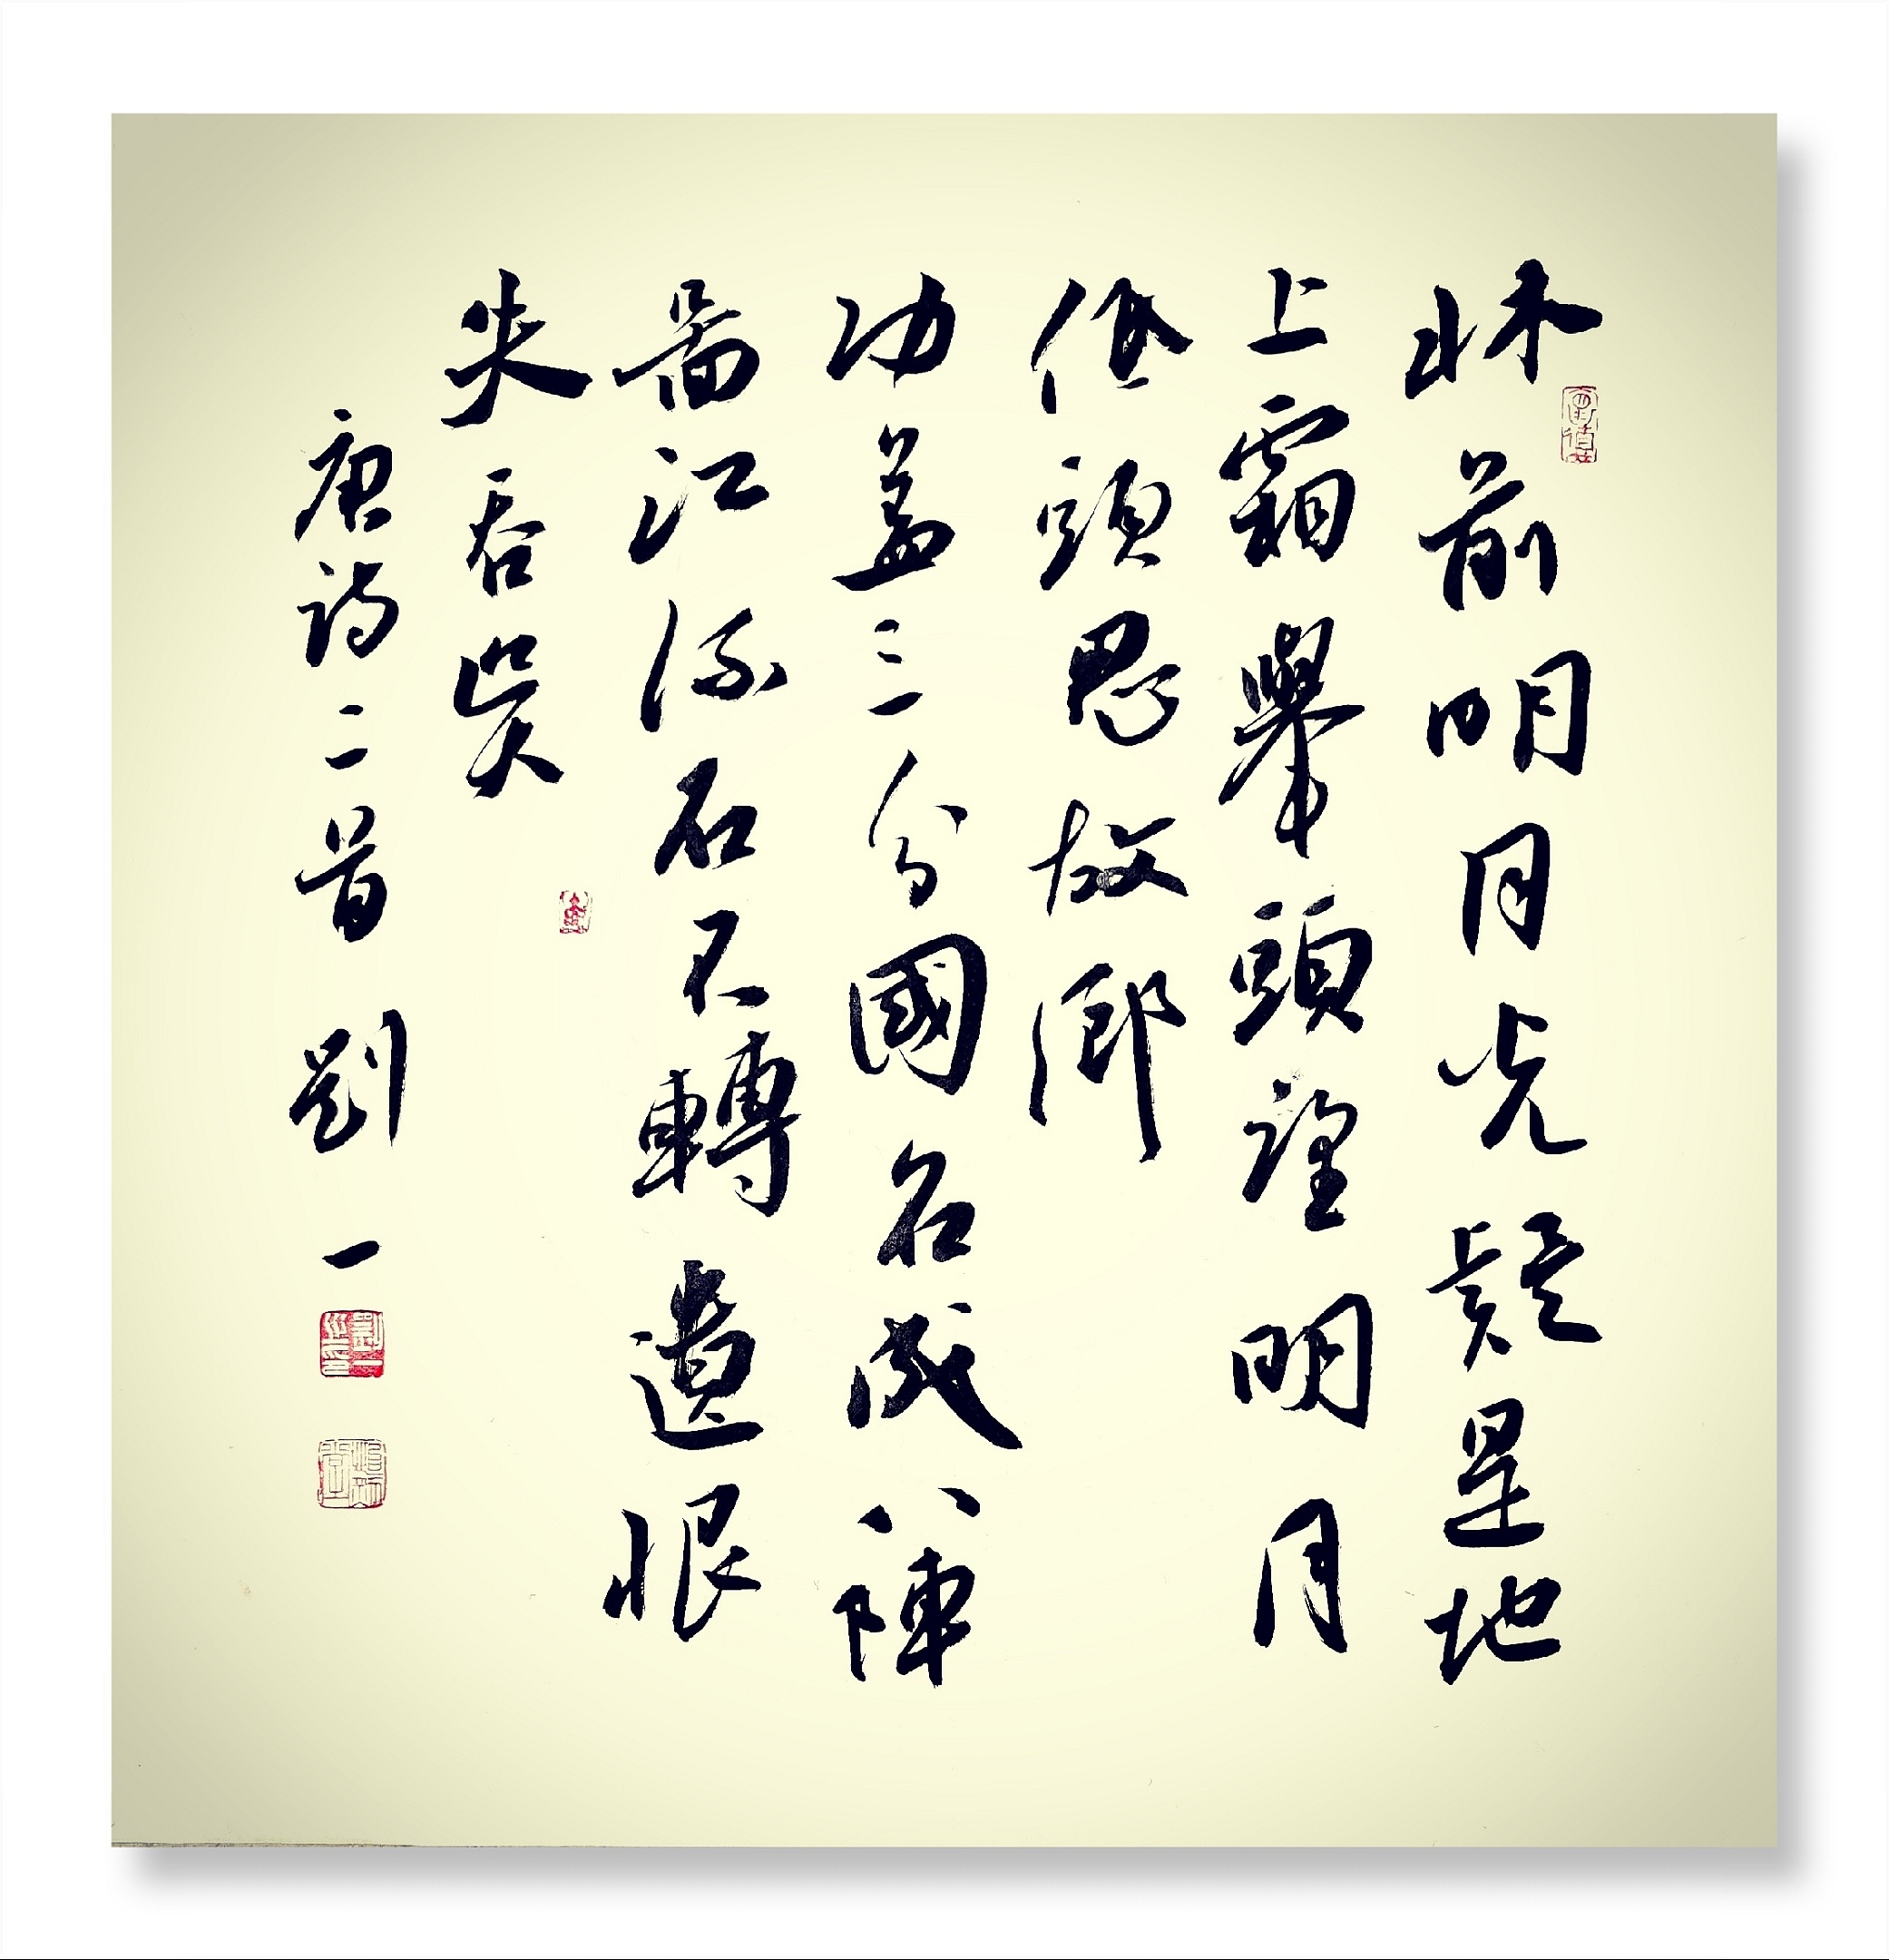 牀前明月光疑是地
上霜舉頭望明月
低頭思故鄉
功蓋三分國名成八陣
啚江流石不轉遺恨
失吞吳
唐詩二首 劉一